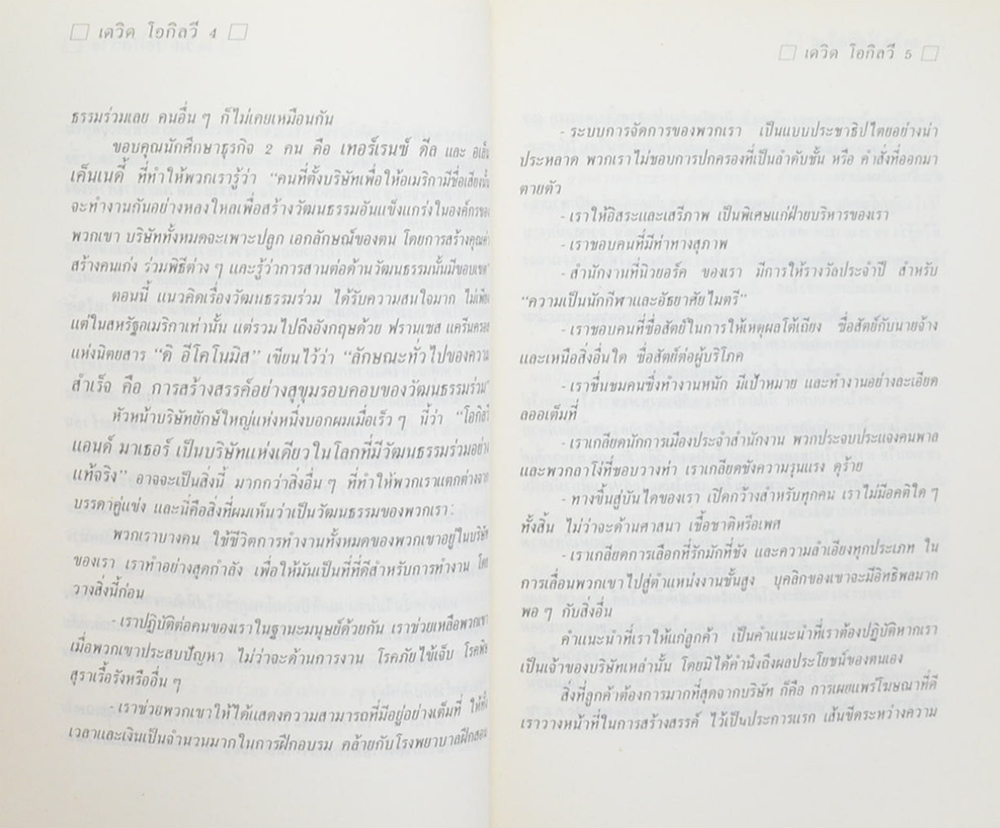 เดวิด โอกิลวี 4
ธรรมร่วมเลย คนอื่น ๆ ก็ไม่เคยเหมือนกัน
ขอบคุณนักศึกษาธุรกิจ 2 คน คือ เทอร์เรนซ์ ดีล และ
เค็นเนดี้ ที่ทำให้พวกเรารู้ว่า “คนที่ตั้งบริษัทเพื่อให้อเมริกามีชื่อเสียงนั้น
จะทำงานกันอย่างหลงใหลเพื่อสร้างวัฒนธรรมอันแข็งแกร่งในองค์กรของ
พวกเขา บริษัททั้งหมดจะเพาะปลูก เอกลักษณ์ของตน โดยการสร้างคุณค่า
สร้างคนเก่ง ร่วมพิธีต่าง ๆ และรู้ว่าการสานต่อด้านวัฒนธรรมนั้นมีขอบเขต”
ตอนนี้ แนวคิดเรื่องวัฒนธรรมร่วม ได้รับความสนใจมาก ไม่เพียง
แต่ในสหรัฐอเมริกาเท่านั้น แต่รวมไปถึงอังกฤษด้วย ฟรานเซส แคร์นครอส
แห่งนิตยสาร “ดิ อีโคโนมิส” เขียนไว้ว่า “ลักษณะทั่วไปของความ
สำเร็จ คือ การสร้างสรรค์อย่างสุขุมรอบคอบของวัฒนธรรมร่วม”
หัวหน้าบริษัทยักษ์ใหญ่แห่งหนึ่งบอกผมเมื่อเร็ว ๆ นี้ว่า “โอกิลวี
แอนด์ มาเธอร์ เป็นบริษัทแห่งเดียวในโลกที่มีวัฒนธรรมร่วมอย่าง
แท้จริง” อาจจะเป็นสิ่งนี้ มากกว่าสิ่งอื่น ๆ ที่ทำให้พวกเราแตกต่างจาก
บรรดาคู่แข่ง และนี่คือสิ่งที่ผมเห็นว่าเป็นวัฒนธรรมของพวกเรา:
พวกเราบางคน ใช้ชีวิตการทำงานทั้งหมดของพวกเขาอยู่ในบริษัท
ของเรา เราทำอย่างสุดกำลัง เพื่อให้มันเป็นที่ที่ดีสำหรับการทำงาน โดย
วางสิ่งนี้ก่อน
- เราปฏิบัติต่อคนของเราในฐานะมนุษย์ด้วยกัน เราช่วยเหลือพวกเขา
เมื่อพวกเขาประสบปัญหา ไม่ว่าจะด้านการงาน โรคภัยไข้เจ็บ โรคพิษ
สุราเรื้อรังหรืออื่น ๆ
- เราช่วยพวกเขาให้ได้แสดงความสามารถที่มีอยู่อย่างเต็มที่ ให้ทั้ง
เวลาและเงินเป็นจำนวนมากในการฝึกอบรม คล้ายกับโรงพยาบาลฝึกสอน
เดวิด โอกิลวี 5
- ระบบการจัดการของพวกเรา เป็นแบบประชาธิปไตยอย่างน่า
ประหลาด พวกเราไม่ชอบการปกครองที่เป็นลำดับชั้น หรือ คำสั่งที่ออกมา
ตายตัว
- เราให้อิสระและเสรีภาพ เป็นพิเศษแก่ฝ่ายบริหารของเรา
- เราชอบคนที่มีท่าทางสุภาพ
- สำนักงานที่นิวยอร์ค ของเรา มีการให้รางวัลประจำปี สำหรับ
“ความเป็นนักกีฬาและอัธยาศัยไมตรี”
- เราชอบคนที่ซื่อสัตย์ในการให้เหตุผลโต้เถียง ซื่อสัตย์กับนายจ้าง
และเหนือสิ่งอื่นใด ซื่อสัตย์ต่อผู้บริโภค
- เราชื่นชมคนซึ่งทำงานหนัก มีเป้าหมาย และทำงานอย่างละเอียด
ลออเต็มที่
- เราเกลียดนักการเมืองประจำสำนักงาน พวกประจบประแจงคนพาล
และพวกลาโง่ที่ชอบวางท่า เราเกลียดชังความรุนแรง ดุร้าย
- ทางขึ้นสู่บันไดของเรา เปิดกว้างสำหรับทุกคน เราไม่มีอคติใด ๆ
ทั้งสิ้น ไม่ว่าจะด้านศาสนา เชื้อชาติหรือเพศ
- เราเกลียดการเลือกที่รักมักที่ชัง และความลำเอียงทุกประเภท ใน
การเลื่อนพวกเขาไปสู่ตำแหน่งงานชั้นสูง บุคลิกของเขาจะมีอิทธิพลมาก
พอ ๆ กับสิ่งอื่น
คำแนะนำที่เราให้แก่ลูกค้า เป็นคำแนะนำที่เราต้องปฏิบัติหากเรา
เป็นเจ้าของบริษัทเหล่านั้น โดยมิได้คำนึงถึงผลประโยชน์ของตนเอง
สิ่งที่ลูกค้าต้องการมากที่สุดจากบริษัท ก็คือ การเผยแพร่โฆษณาที่ดี
เราวางหน้าที่ในการสร้างสรรค์ ไว้เป็นประการแรก เส้นขีดระหว่างความ